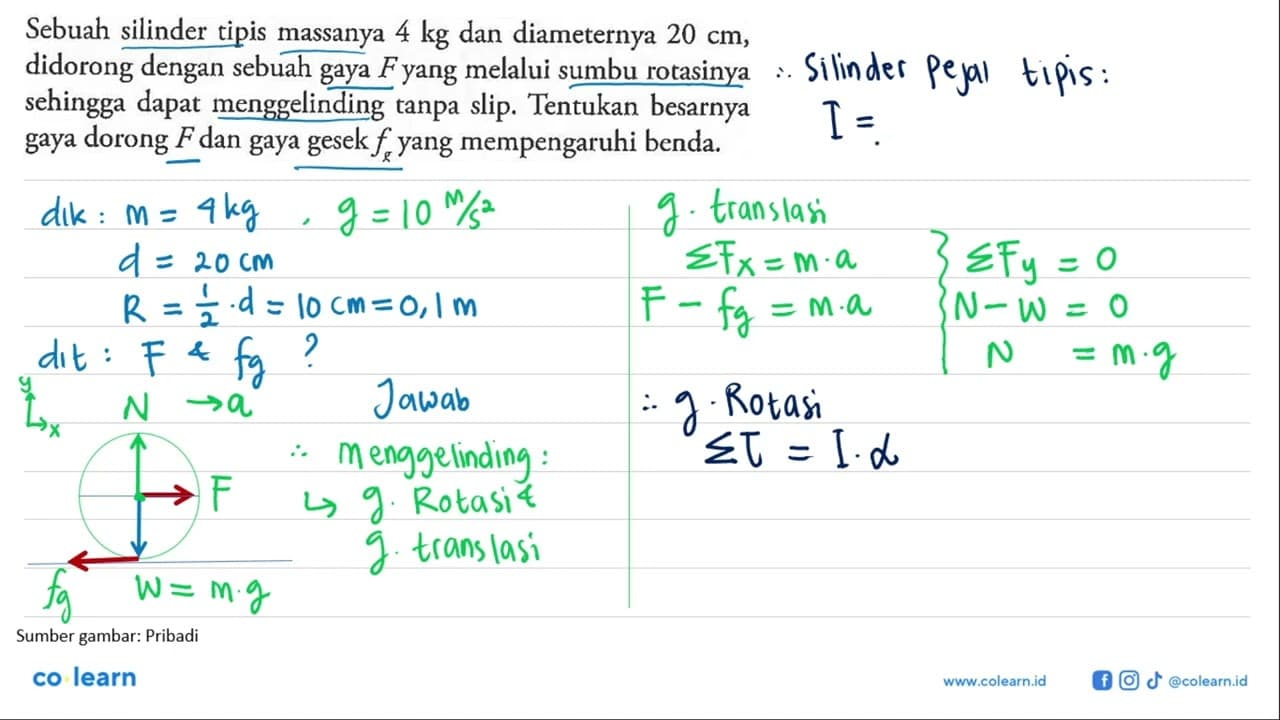 Sebuah silinder tipis massanya 4 kg dan diameternya 20 cm,
didorong dengan sebuah gaya F yang melalui sumbu rotasinya
sehingga dapat menggelinding tanpa slip. Tentukan besarnya
gaya dorong F dan gaya gesek f_g yang mempengaruhi benda.
∴ Silinder Pejal tipis:
I =
dik : m = 4 kg , g = 10 m/s²
d = 20 cm
R = 1/2 · d = 10 cm = 0,1 m
dit : F & fg ?
Jawab
y
x
N → a
F
fg
W = m·g
∴ Menggelinding :
↳ g. Rotasi &
g. translasi
g. translasi
ΣFx = m·a
F − fg = m·a
ΣFy = 0
N − W = 0
N = m·g
∴ g. Rotasi
Στ = I·α
Sumber gambar: Pribadi
co learn
www.colearn.id
@colearn.id